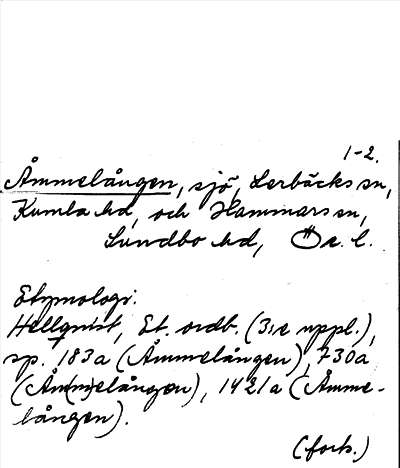 1-2.
Åmmelången, sjö, Lerbäcks sn,
Kumla hd, och Hammars sn,
Sundbo hd, Ör. l.
Etymologi:
Hellquist, Et. ordb. (3:e uppl.),
sp. 183a (Åmmelången), 730a
(Åm(m)elången), 1421a (Åmme-
lången).
(forts.)